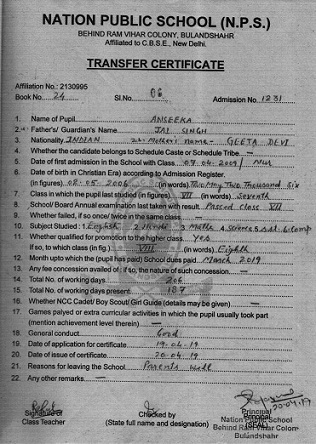 NATION PUBLIC SCHOOL (N.P.S.)
BEHIND RAM VIHAR COLONY, BULANDSHAHR
Affiliated to C.B.S.E., New Delhi.
TRANSFER CERTIFICATE
Affiliation No.: 2130995
Book No. 24 Sl.No. 06 Admission No. 1231
1. Name of Pupil ANSEEKA
2. Father's/ Guardian's Name JAI SINGH
3. Nationality INDIAN Mother's name - GEETA DEVI
4. Whether the candidate belongs to Schedule Caste or Schedule Tribe —
5. Date of first admission in the School with Class 07.04.2009/ Nur
6. Date of birth in Christian Era) according to Admission Register.
(in figures) 02-05-2006 (in words) Two May Two Thousand Six
7. Class in which the pupil last studied (in figures) VII (in words) Seventh
8. School/Board Annual examination last taken with result Passed class VII
9. Whether failed, if so once/ twice in the same class —
10. Subject Studied : 1 English 2 Hindi 3 Maths 4 Science 5 S.St 6 Comp
11. Whether qualified for promotion to the higher class yes
If so, to which class (in fig.) VIII (in words) Eighth
12. Month upto which the (pupil has paid) School dues paid March, 2019
13. Any fee concession availed of : if so, the nature of such concession —
14. Total No. of working days 206
15. Total No. of working days present 187
16. Whether NCC Cadet/ Boy Scout/ Girl Guide (details may be given) —
17. Games palyed or extra curricular activities in which the pupil usually took part
(mention achievement level therein) —
18. General conduct Good
19. Date of application for certificate 19-04-19
20. Date of issue of certificate 20-04-19
21. Reasons for leaving the School Parents will
22. Any other remarks —
20-04-19
Signature of Checked by Principal
Class Teacher (State full name and designation) (SEAL)
Nation Public School
Behind Ram Vihar Colon
Bulandshahr